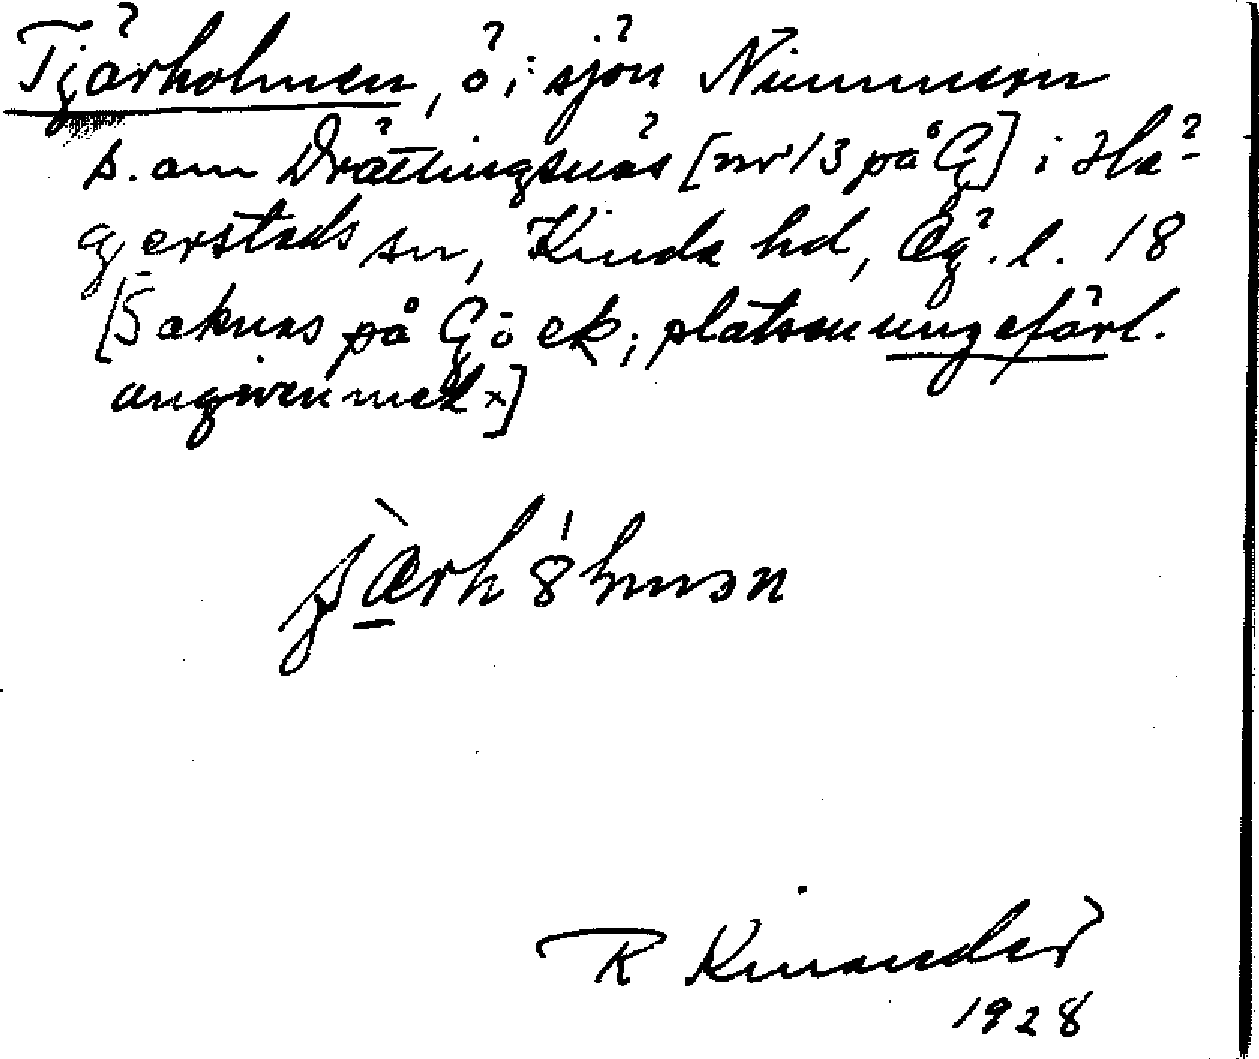 Tjärholmen, ö i sjön Nimmern
s. om Drättingsnäs [nr 13 på G] i Hä-
gerstads sn, Kinda hd, Ög. l. 18
[Saknas på Gö ek; platsen ungefärl.
angiven med ×]
R Kinander
1928